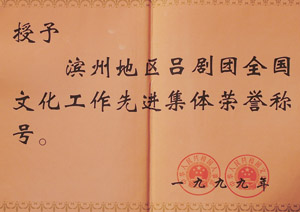 授予
滨州地区吕剧团全国
文化工作先进集体荣誉称
号。
一九九九年